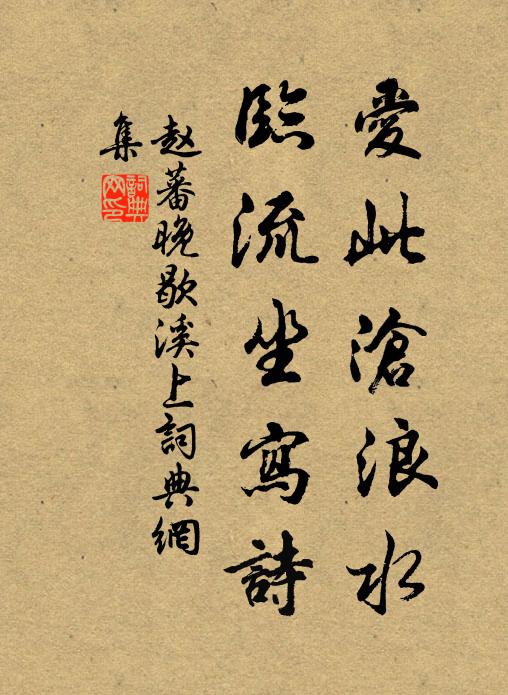 愛此滄浪水
臨流坐寫詩
赵蕃晚歇溪上詞典網
集
詞典
网印